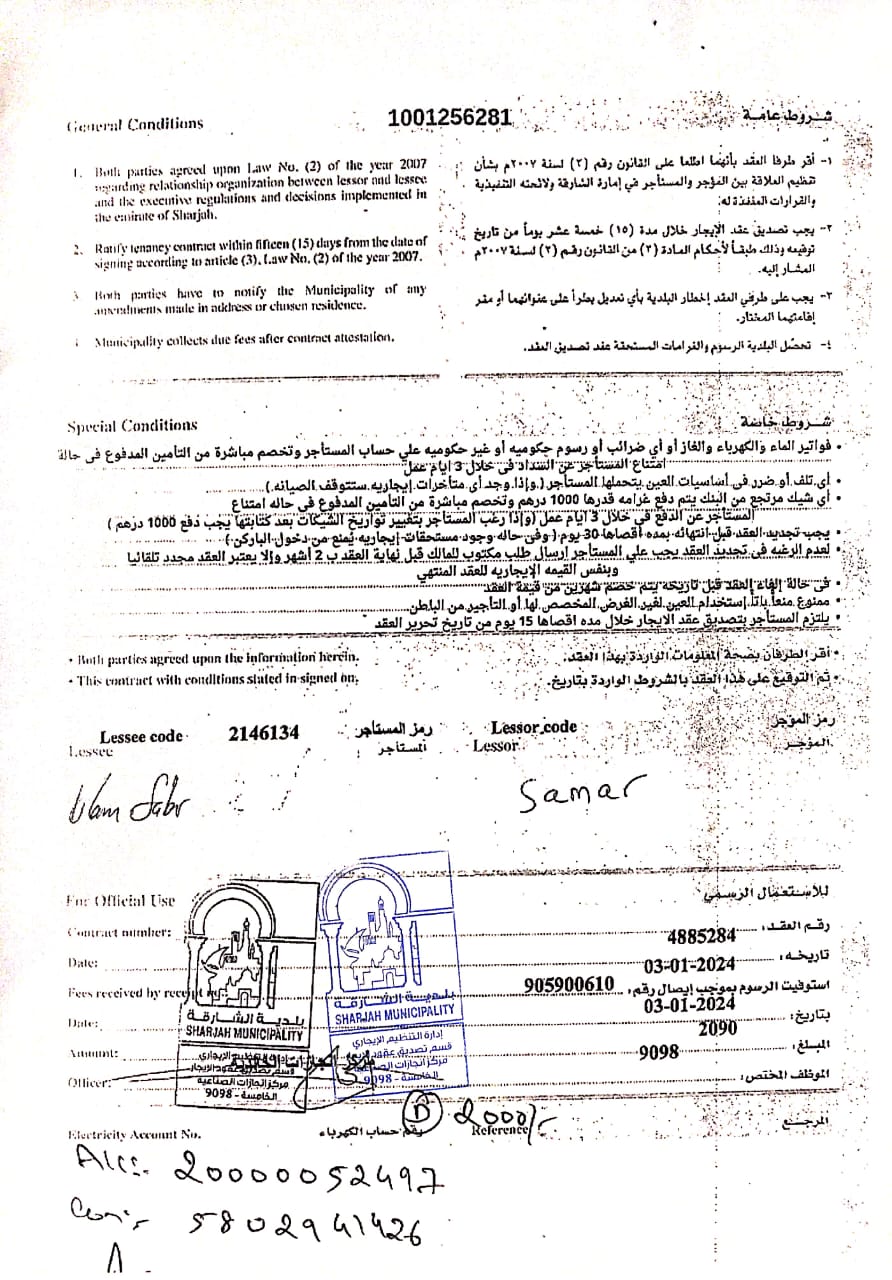 General Conditions
1001256281
شروط عامة
1. Both parties agreed upon Law No. (2) of the year 2007
regarding relationship organization between lessor and lessee
and the executive regulations and decisions implemented in
the emirate of Sharjah.
2. Ratify tenancy contract within fifeen (15) days from the date of
signing according to article (3). Law No. (2) of the year 2007.
3 Both parties have to notify the Municipality of any
amendments made in address or chosen residence.
4 Municipality collects due fees after contract attestation.
١- أقر طرفا العقد بأنهما اطلعا على القانون رقم (٢) لسنة ٢٠٠٧م بشأن
تنظيم العلاقة بين المؤجر والمستأجر في إمارة الشارقة ولائحته التنفيذية
والقرارات المنفذة له.
٢- يجب تصديق عقد الإيجار خلال مدة (١٥) خمسة عشر يوماً من تاريخ
توقيعه وذلك طبقاً لأحكام المادة (٣) من القانون رقم (٢) لسنة ٢٠٠٧م
المشار إليه.
٣- يجب على طرفي العقد إخطار البلدية بأي تعديل يطرأ على عنوانهما أو مقر
إقامتهما المختار.
٤- تحصل البلدية الرسوم والغرامات المستحقة عقد تصديق العقد.
Special Conditions
شروط خاصة
• فواتير الماء والكهرباء والغاز أو أي ضرائب أو رسوم حكوميه أو غير حكوميه علي حساب المستأجر وتخصم مباشرة من التأمين المدفوع فى حالة
امتناع المستأجر عن السداد فى خلال 3 ايام عمل
• أى تلف أو ضرر فى أساسيات العين يتحملها المستأجر (.وإذا وجد أى متأخرات إيجاريه ستتوقف الصيانه.)
• أي شيك مرتجع من البنك يتم دفع غرامه قدرها 1000 درهم وتخصم مباشرة من التأمين المدفوع في حاله امتناع
المستأجر عن الدفع في خلال 3 ايام عمل (وإذا رغب المستأجر بتغيير تواريخ الشيكات بعد كتابتها يجب دفع 1000 درهم )
• يجب تجديد العقد قبل انتهائه بمده اقصاها 30 يوم ( وفى حاله وجود مستحقات إيجاريه يُمنع من دخول الباركن.)
• لعدم الرغبه فى تجديد العقد يجب علي المستأجر إرسال طلب مكتوب للمالك قبل نهاية العقد ب 2 أشهر وإلا يعتبر العقد مجدد تلقائيا
وبنفس القيمه الإيجاريه للعقد المنتهي
• فى حالة إلغاء العقد قبل تاريخه يتم خصم شهرين من قيمة العقد
• ممنوع منعاً باتاً إستخدام العين لغير الغرض المخصص لها أو التأجير من الباطن
• يلتزم المستأجر بتصديق عقد الايجار خلال مده اقصاها 15 يوم من تاريخ تحرير العقد
• Both parties agreed upon the information herein.
• أقر الطرفان بصحة المعلومات الواردة بهذا العقد.
• This contract with conditions stated in signed on.
• تم التوقيع على هذا العقد بالشروط الواردة بتاريخ.
Lessee code 2146134 رمز المستأجر Lessor code رمز المؤجر
Lessee المستأجر Lessor المؤجر
Samar
For Official Use
للأستعمال الرسمي
Contract number: 4885284 رقم العقد:
Date: 03-01-2024 تاريخه:
Fees received by receipt 905900610 استوفيت الرسوم بموجب إيصال رقم:
Date: 03-01-2024 بتاريخ:
Amount: 2090 المبلغ:
Officer: 9098 الموظف المختص:
بلدية الشارقة
SHARJAH MUNICIPALITY
مركز انجازات الصناعية
الخامسة - 9098
بلدية الشارقة
SHARJAH MUNICIPALITY
إدارة التنظيم الإيجاري
قسم تصديق عقود الإيجار
مركز انجازات الصناعية
الخامسة - 9098
D 2000/-
Electricity Account No. رقم حساب الكهرباء Reference المرجع
20000052497
5802941426